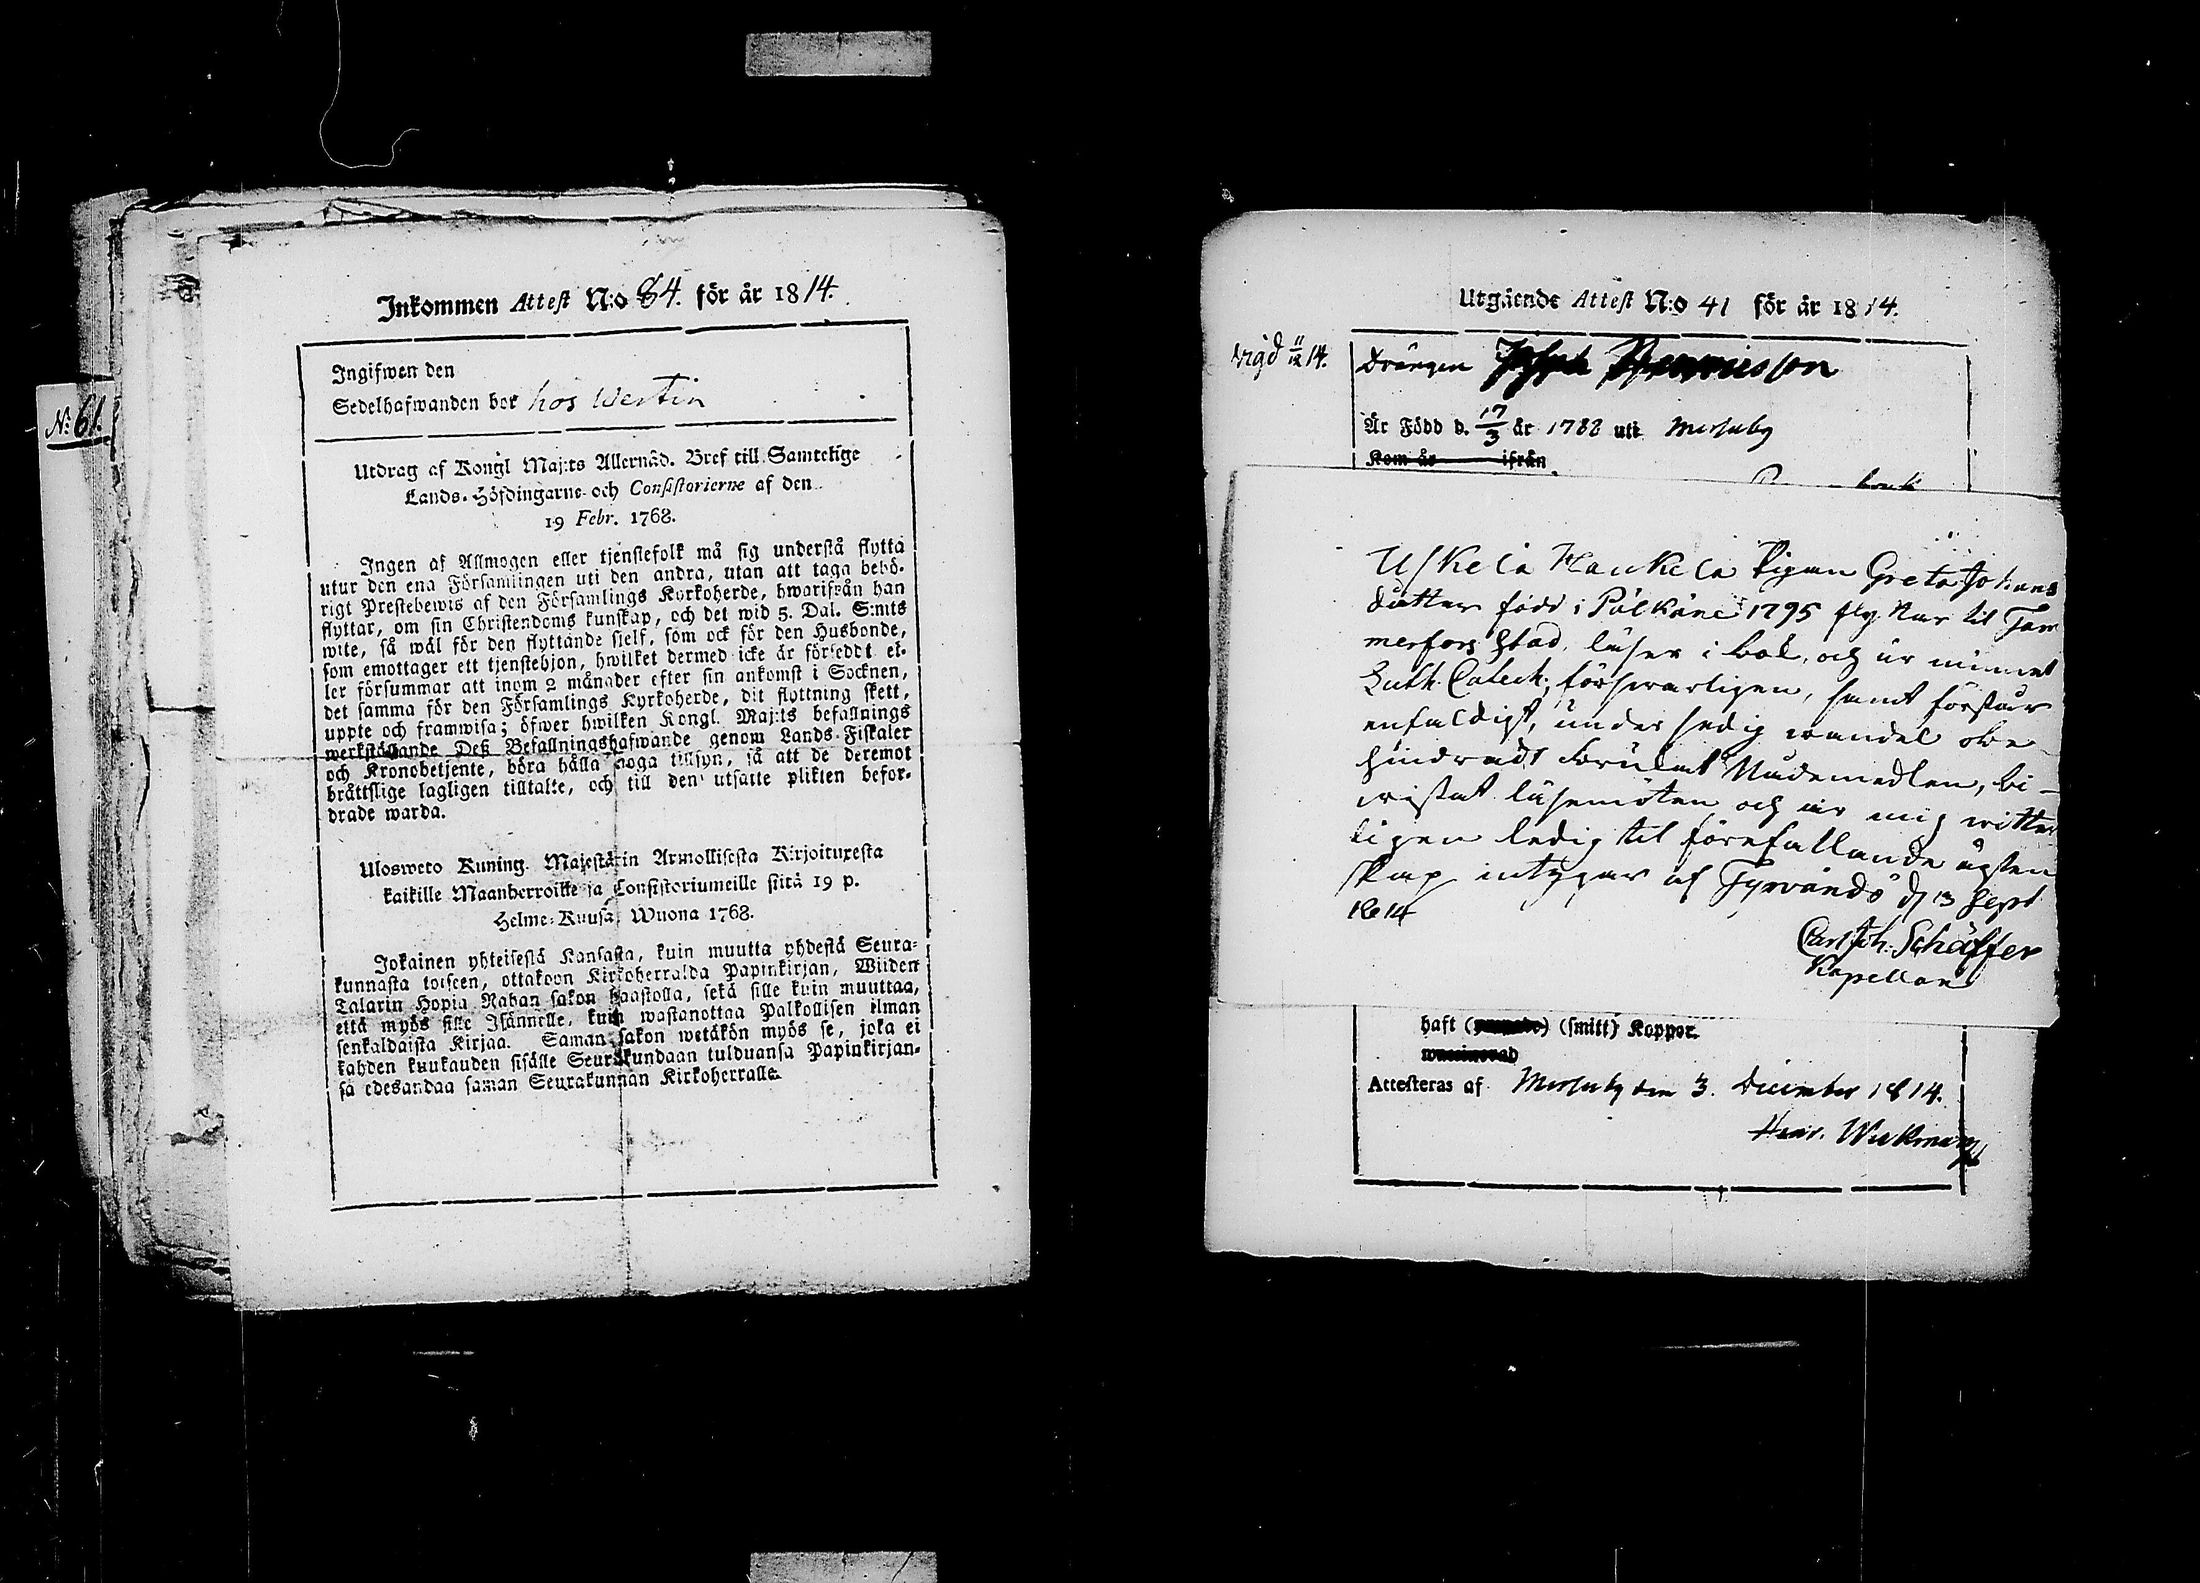 Inkommen Attest N:o 84. för år 1814.
Ingifwen den
Sedelhafwanden bor hos Wertin
Utdrag af Kongl Maj:ts Allernåd. Bref till Samtelige
Lands-Höfdingarne och Consistorierne af den
19 Febr. 1768.
Ingen af Allmogen eller tjenstefolk må sig understå flytta
utur den ena Församlingen uti den andra, utan att taga behö-
rigt Prestebewis af den Församlings Kyrkoherde, hwarifrån han
flyttar, om sin Christendoms kunskap, och det wid 5. Dal. S:mts
wite, så wäl för den flyttande sjelf, som ock för den Husbonde,
som emottager ett tjenstehjon, hwilket dermed icke är förseddt el-
ler försummar att inom 2 månader efter sin ankomst i Socknen,
det samma för den Församlings Kyrkoherde, dit flyttning skett,
uppte och framwisa; öfwer hwilken Kongl. Maj:ts befallnings
werkställande Deß Befallningshafwande genom Lands-Fiskaler
och Kronobetjente, böra hålla noga tillsyn, så att de deremot
brättslige lagligen tilltalte, och till den utsatte plikten befor-
drade warda.
Ulosweto Kuning. Majestätin Armollisesta Kirjoituxesta
kaikille Maanherroille ja Consistoriumeille siitä 19 p.
Helme-Kuusa, Wuona 1768.
Jokainen yhteisestä Kansasta, kuin muutta yhdestä Seura-
kunnasta toiseen, ottakoon Kirkoherralda Papinkirjan, Wiiden
Talarin Hopia Rahan sakon haastolla, sekä sille kuin muuttaa,
että myös sille Isännelle, kuin wastanottaa Palkollisen ilman
senkaldaista Kirjaa. Saman sakon wetäkön myös se, joka ei
kahden kuukauden sisälle Seurakundaan tulduansa Papinkirjan-
sa edesandaa saman Seurakunnan Kirkoherralle.
No: 61.
Utgående Attest N:o 41 för år 1814.
Vigd 11/12 14.
Drängen
Är Född d. 17/3 år 1788 uti Messuby
Kom år ifrån
Uskela Haukela Pigan Greta Johans
dotter född i Pälkäne 1795 flyttar til Tam
merfors Stad, läser i bok, och ur minnet
Luth. Catech. försvarligen, samt förstår
enfaldigt, under sedig wandel obe-
hindradt brukat Nådemedlen, bi-
wistat läsemöten och är mig witter
ligen ledig til förefallande ägten
skap intygar af Tyrvändö d 13 Sept
1814
Carl Joh: Schäffer
Kapellan
haft (smitt) Koppor.
Attesteras af Messuby den 3. December 1814.
Henr. Wickman